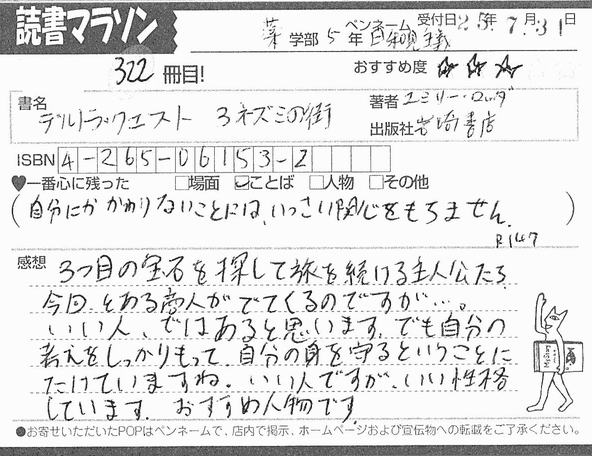 読書マラソン
ペンネーム 受付日25年7月31日
薬学部5年日和見主義
322冊目!
おすすめ度 ☆☆☆
書名 デルトラ・クエスト 3 ネズミの街
著者 エミリー・ロッダ
出版社 岩崎書店
ISBN 4-265-06153-2
♥一番心に残った □場面 ☑ことば □人物 □その他
(自分にかかわりないことには、いっさい関心をもちません。)
P147
感想 3つ目の宝石を探して旅を続ける主人公たち
今回、とある商人がでてくるのですが…。
いい人、ではあると思います。でも自分の
考えをしっかりもって、自分の身を守るということに
たけていますね。いい人ですが、いい性格
しています。おすすめ人物です。
●お寄せいただいたPOPはペンネームで、店内で掲示、ホームページおよび宣伝物への転載をご了承ください。